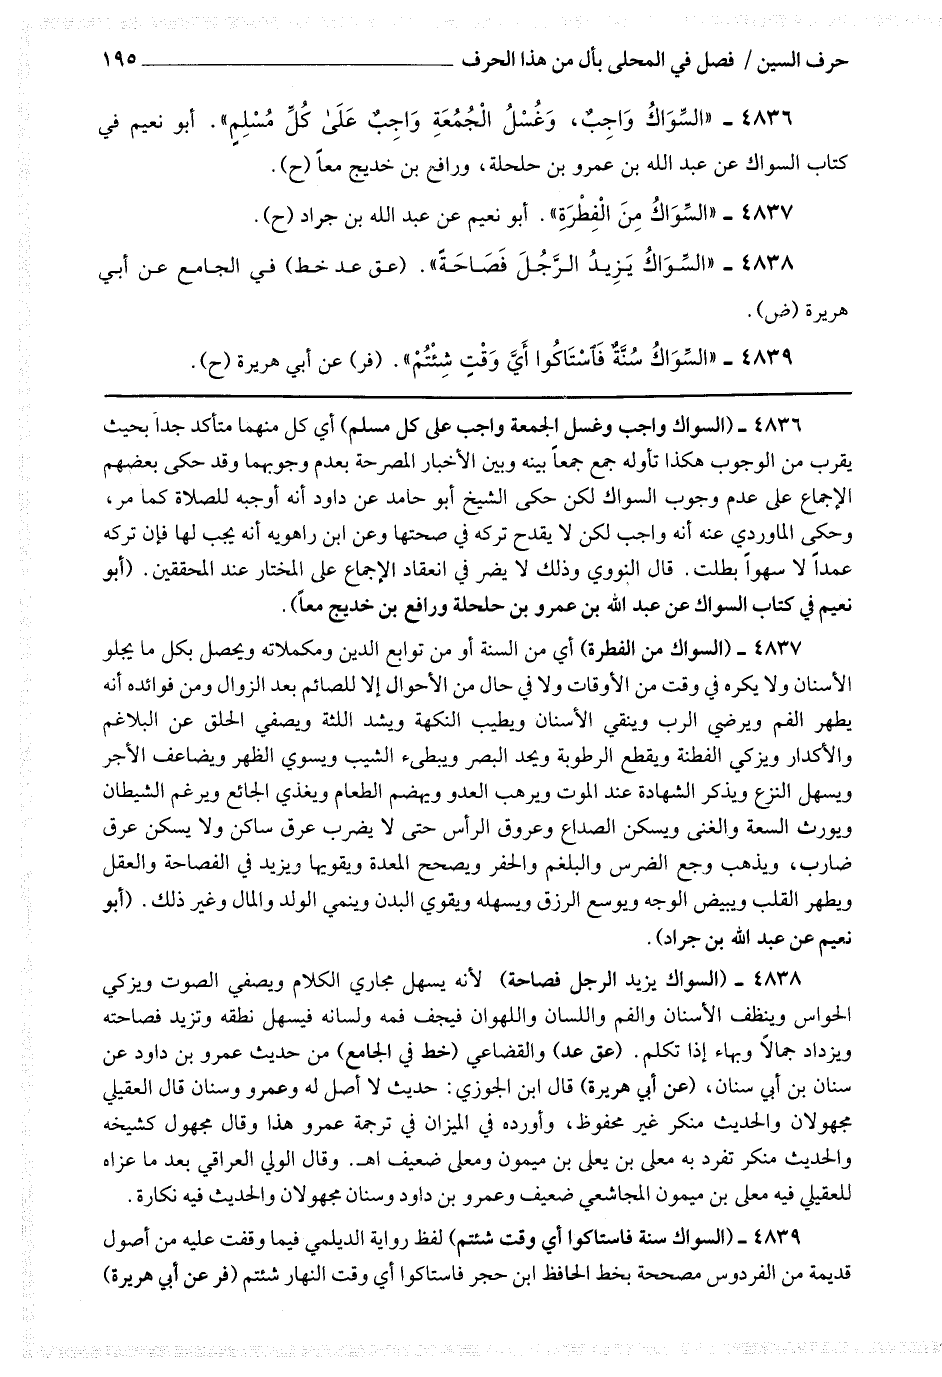 حرف السين / فصل في المحلى بأل من هذا الحرف ــــــــــــــــــــــــــــــــ ١٩٥
٤٨٣٦ ـ «السِّوَاكُ وَاجِبٌ، وَغُسْلُ الْجُمُعَةِ وَاجِبٌ عَلَىٰ كُلِّ مُسْلِمٍ». أبو نعيم في
كتاب السواك عن عبد الله بن عمرو بن حلحلة، ورافع بن خديج معاً (ح).
٤٨٣٧ ـ «السِّوَاكُ مِنَ الْفِطْرَةِ». أبو نعيم عن عبد الله بن جراد (ح).
٤٨٣٨ ـ «السِّوَاكُ يَزِيدُ الرَّجُلَ فَصَاحَةً». (عق عد خط) في الجامع عن أبي
هريرة (ض).
٤٨٣٩ ـ «السِّوَاكُ سُنَّةٌ فَاسْتَاكُوا أَيَّ وَقْتٍ شِئْتُمْ». (فر) عن أبي هريرة (ح).
٤٨٣٦ ـ (السواك واجب وغسل الجمعة واجب على كل مسلم) أي كل منهما متأكد جداً بحيث
يقرب من الوجوب هكذا تأوله جمع جمعاً بينه وبين الأخبار المصرحة بعدم وجوبهما وقد حكى بعضهم
الإجماع على عدم وجوب السواك لكن حكى الشيخ أبو حامد عن داود أنه أوجبه للصلاة كما مر،
وحكى الماوردي عنه أنه واجب لكن لا يقدح تركه في صحتها وعن ابن راهويه أنه يجب لها فإن تركه
عمداً لا سهواً بطلت. قال النووي وذلك لا يضر في انعقاد الإجماع على المختار عند المحققين. (أبو
نعيم في كتاب السواك عن عبد الله بن عمرو بن حلحلة ورافع بن خديج معاً).
٤٨٣٧ ـ (السواك من الفطرة) أي من السنة أو من توابع الدين ومكملاته ويحصل بكل ما يجلو
الأسنان ولا يكره في وقت من الأوقات ولا في حال من الأحوال إلا للصائم بعد الزوال ومن فوائده أنه
يطهر الفم ويرضي الرب وينقي الأسنان ويطيب النكهة ويشد اللثة ويصفي الحلق عن البلاغم
والأكدار ويزكي الفطنة ويقطع الرطوبة ويحد البصر ويبطىء الشيب ويسوي الظهر ويضاعف الأجر
ويسهل النزع ويذكر الشهادة عند الموت ويرهب العدو ويهضم الطعام ويغذي الجائع ويرغم الشيطان
ويورث السعة والغنى ويسكن الصداع وعروق الرأس حتى لا يضرب عرق ساكن ولا يسكن عرق
ضارب، ويذهب وجع الضرس والبلغم والحفر ويصحح المعدة ويقويها ويزيد في الفصاحة والعقل
ويطهر القلب ويبيض الوجه ويوسع الرزق ويسهله ويقوي البدن وينمي الولد والمال وغير ذلك. (أبو
نعيم عن عبد الله بن جراد).
٤٨٣٨ ـ (السواك يزيد الرجل فصاحة) لأنه يسهل مجاري الكلام ويصفي الصوت ويزكي
الحواس وينظف الأسنان والفم واللسان واللهوان فيجف فمه ولسانه فيسهل نطقه وتزيد فصاحته
ويزداد جمالاً وبهاء إذا تكلم. (عق عد) والقضاعي (خط في الجامع) من حديث عمرو بن داود عن
سنان بن أبي سنان، (عن أبي هريرة) قال ابن الجوزي: حديث لا أصل له وعمرو وسنان قال العقيلي
مجهولان والحديث منكر غير محفوظ، وأورده في الميزان في ترجمة عمرو هذا وقال مجهول كشيخه
والحديث منكر تفرد به معلى بن يعلى بن ميمون ومعلى ضعيف اهـ. وقال الولي العراقي بعد ما عزاه
للعقيلي فيه معلى بن ميمون المجاشعي ضعيف وعمرو بن داود وسنان مجهولان والحديث فيه نكارة.
٤٨٣٩ ـ (السواك سنة فاستاكوا أي وقت شئتم) لفظ رواية الديلمي فيما وقفت عليه من أصول
قديمة من الفردوس مصححة بخط الحافظ ابن حجر فاستاكوا أي وقت النهار شئتم (فر عن أبي هريرة)